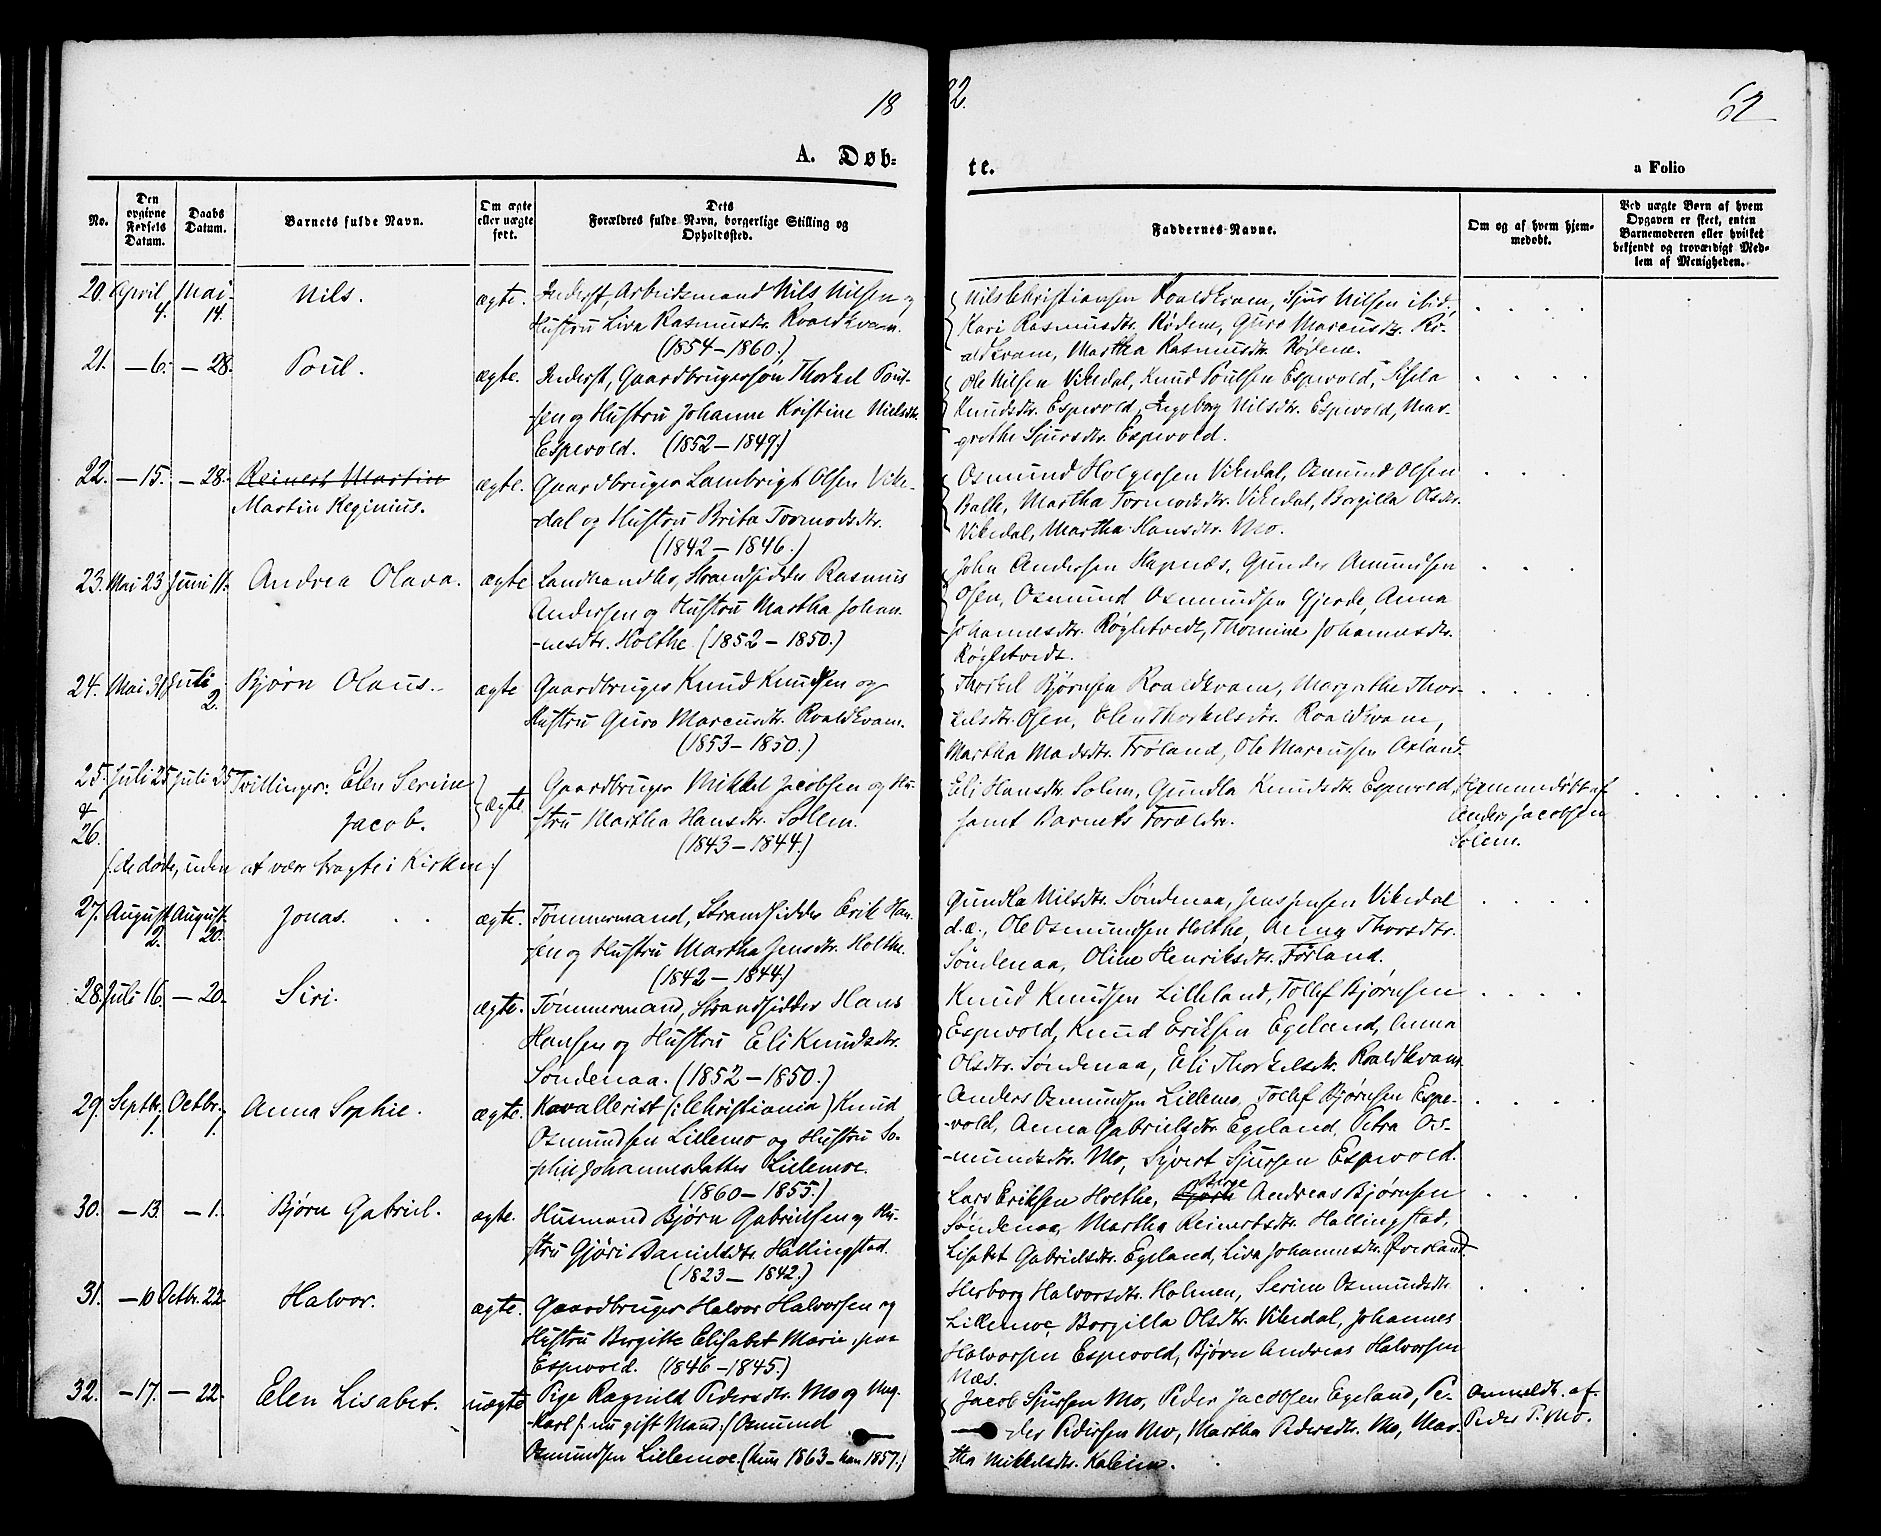 18
82.
62
A. Døb-
te.
a Folio
No.
Den opgivne Fødsels Datum.
Daabs Datum.
Barnets fulde Navn.
Om ægte eller uægte født.
Dets Forældres fulde Navn, borgerlige Stilling og Opholdssted.
Faddernes Navne.
Om og af hvem hjemmedøbt.
Ved uægte Børn af hvem Opgaven er skeet, enten Barnemoderen eller hvilket bekjendt og troværdigt Medlem af Menigheden.
20. April 4. Mai 14. Nils. ægte. Inderst, Arbeidsmand Nils Nilsen og
Hustru Liva Rasmusdtr. Roaldkvam.
(1854–1860.)
Nils Christiansen Roaldkvam, Sjur Nilsen ibid,
Kari Rasmusdtr. Rødene, Guro Marcusdtr. Ro-
aldkvam, Martha Rasmusdtr. Rødene.
21. – 6. – 28. Poul. ægte. Inderst, Gaardbrugersøn Thorkel Poul-
sen og Hustru Johanne Kristine Nielsdtr.
Espevold. (1852–1849)
Ole Nilsen Vikedal, Knud Poulsen Espevold, Sisela
Knudsdtr. Espevold, Ingeborg Nilsdtr. Espevold, Mar-
grethe Sjursdtr. Espevold.
22. – 15. – 28. Reinert Martin
Martin Reginius. ægte. Gaardbruger Lambrigt Olsen Vike-
dal og Hustru Brita Tormodsdtr.
(1842–1846.)
Osmund Holgersen Vikedal, Osmund Olsen
Balle, Martha Tormodsdtr. Vikedal, Borgilla Olsdtr.
Vikedal, Martha Hansdtr. Mo.
23. Mai 23 Juni 11. Andrea Olava. ægte Landhandler, Strandsidder Rasmus
Andersen og Hustru Martha Johan-
nesdtr. Holthe (1852–1850.)
John Andersen Hapnæs, Gunder Amundsen
Øsen, Osmund Osmundsen Gjerde, Anna
Johannesdtr. Røgletvedt, Thomine Johannesdtr.
Røgletvedt.
24. Mai 31 Juli 2. Bjørn Olaus. ægte Gaardbruger Knud Knudsen og
Hustru Guro Marcusdtr. Roaldkvam.
(1853–1850.)
Thorkel Bjørnsen Roaldkvam, Margrethe Thor-
kelsdtr. Øsen, Elen Thorkelsdtr. Roaldkvam,
Martha Madsdtr. Frøland, Ole Marcussen Oxland.
25. & 26. Juli 25 Juli 25 Tvillinger: Elen Serine
Jacob. ægte Gaardbruger Mikkel Jacobsen og Hu-
stru Martha Hansdtr. Solem.
(1843–1844.)
(: de døde, uden at være bragte i Kirken :)
Eli Hansdtr. Solem, Gundla Knudsdtr. Espevold,
samt Barnets Forældre.
Hjemmedøbt af
Anders Jacobsen
Solem.
27. August 2. August 20. Jonas. ægte. Tømmermand, Strandsidder Erik Han-
sen og Hustru Martha Jensdtr. Holthe.
(1842–1844)
Gundla Nilsdtr. Søndenaa, Jens Jensen Vikedal
d.æ., Ole Osmundsen Holthe, Anna Thorsdtr.
Søndenaa, Oline Henriksdtr. Førland.
28. Juli 16. – 20. Siri. ægte. Tømmermand, Strandsidder Hans
Hansen og Hustru Eli Knudsdtr.
Søndenaa. (1852–1850.)
Knud Knudsen Lilleland, Tollef Bjørnsen
Espevold, Knud Eriksen Egeland, Anna
Olsdtr. Søndenaa, Eli Thorkelsdtr. Roaldkvam
29. Septbr. 1. Octbr. 1. Anna Sophie. ægte. Kavallerist (: Christiania) Knud
Osmundsen Lillemo og Hustru So-
phie Johannesdatter Lillemoe.
(1860–1855.)
Anders Osmundsen Lillemo, Tollef Bjørnsen Espe-
vold, Anna Gabrielsdtr. Egeland, Petra Os-
mundsdtr. Mo, Sivert Sjursen Espevold.
30. – 13. – 1. Bjørn Gabriel. ægte. Husmand Bjørn Gabrielsen og Hu-
stru Gjøri Danielsdtr. Hallingstad.
(1823–1842.)
Lars Eriksen Holthe, Andreas Bjørnsen
Søndenaa, Martha Reinertsdtr. Hallingstad,
Lisabet Gabrielsdtr. Egeland, Liva Johannesdtr. Øverland
31. – 10 Octbr. 22. Halvor. ægte. Gaardbruger Halvor Halvorsen og
Hustru Birgitte Elisabet Marie
Espevold. (1846–1845)
Herborg Halvorsdtr. Holmen, Serine Osmundsdtr.
Lillemoe, Borgilla Olsdtr. Vikedal, Johannes
Halvorsen Espevold, Bjørn Andreas Halvorsen
Næs.
32. – 17. – 22. Elen Lisabet. uægte Pige Ragnild Pedersdtr. Mo og Ung-
karl (: nu gift Mand :) Osmund
Osmundsen Lillemoe. (hun 1863 – han 1857.)
Jacob Sjursen Mo, Peder Jacobsen Egeland, Pe-
der Pedersen Mo, Martha Pedersdtr. Mo, Mar-
tha Mikkelsdtr. Kaleim.
Anmeldt. af
Peder P. Mo.